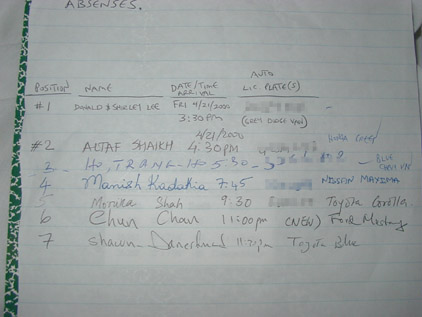 ABSENSES.
POSITION NAME DATE/TIME ARRIVAL AUTO LIC. PLATE(S)
#1 DONALD & SHIRLEY LEE FRI 4/21/2000 -
3:30PM (GREY DODGE VAN)
4/21/2000
#2 ALTAF SHAIKH 4:30PM
3 HO, TRANG-HO 5:30 BLUE
4 Manish Kadakia 7:45 NISSAN MAXIMA
5 Monika Shah 9:30 Toyota Corolla
6 Chun Chan 11:00pm (NEW) Ford Mustang
7 Shawn Toyota Blue